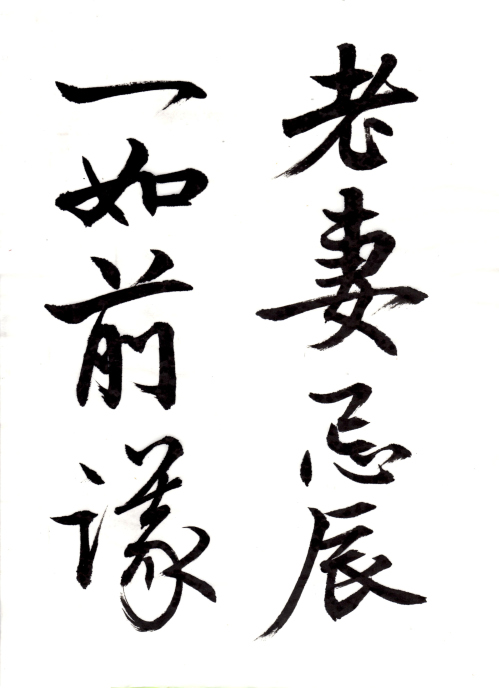 老妻忌辰
一如前議